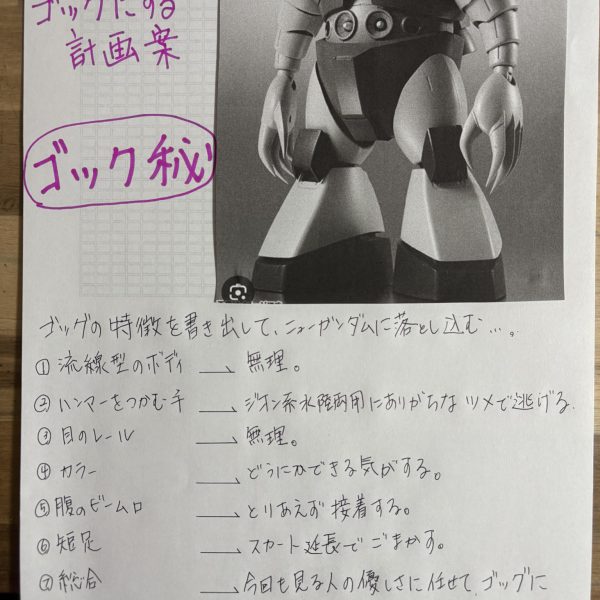 ゴックにする
計画案
ゴック秘
ゴッグの特徴を書き出して、ニューガンダムに落とし込む…。
①流線型のボディ → 無理。
②ハンマーをつかむ手 → ジオン系水陸両用にありがちなツメで逃げる.
③目のレール → 無理。
④カラー → どうにかできる気がする。
⑤腹のビーム口 → とりあえず接着する。
⑥短足 → スカート延長でごまかす。
⑦総合 → 今回も見る人の優しさに任せて、ゴッグに